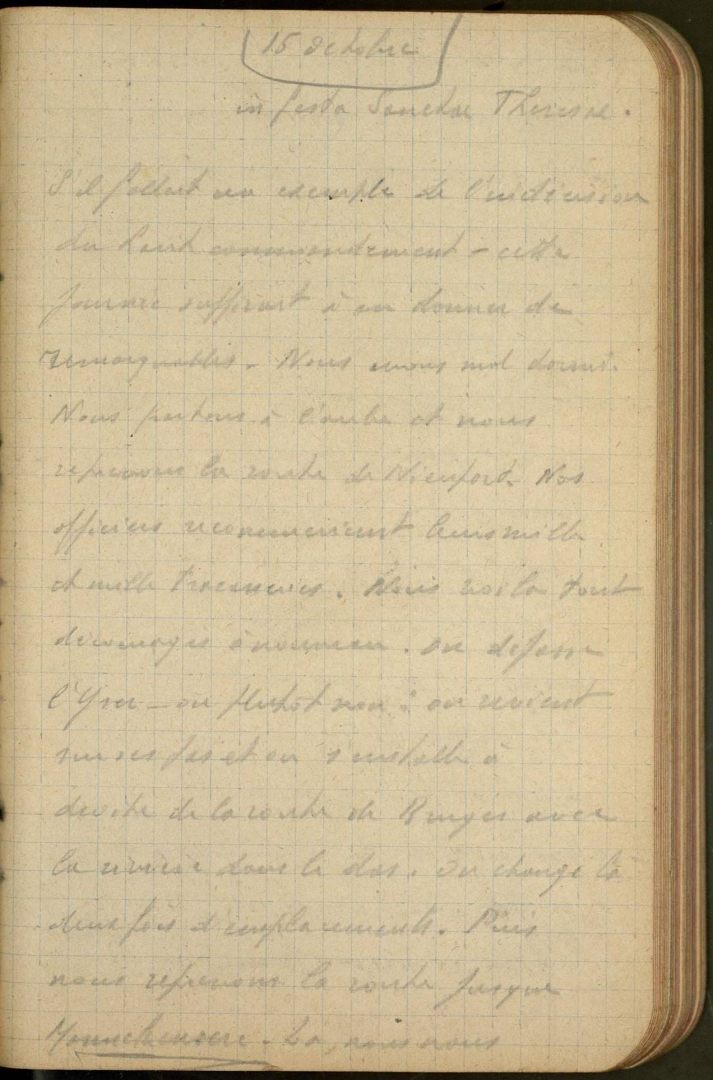 15 octobre
in festo Sanctae Theresae.
S'il fallait un exemple de l'indécision
du haut commandement - cette
journée suffirait à en donner de
remarquables. Nous avons mal dormi.
Nous partons à l'aube et nous
reprenons la route de Nieuport. Nos
officiers recommencent leurs mille
et mille tracasseries. Nous voilà tout
découragés à nouveau. On dépasse
l'Yser - ou plutôt non : on revient
sur ses pas et on s'installe à
droite de la route de Bruges avec
la rivière dans le dos. On change là
deux fois d'emplacements. Puis
nous reprenons la route jusque
Mannekensvere. Là, nous nous